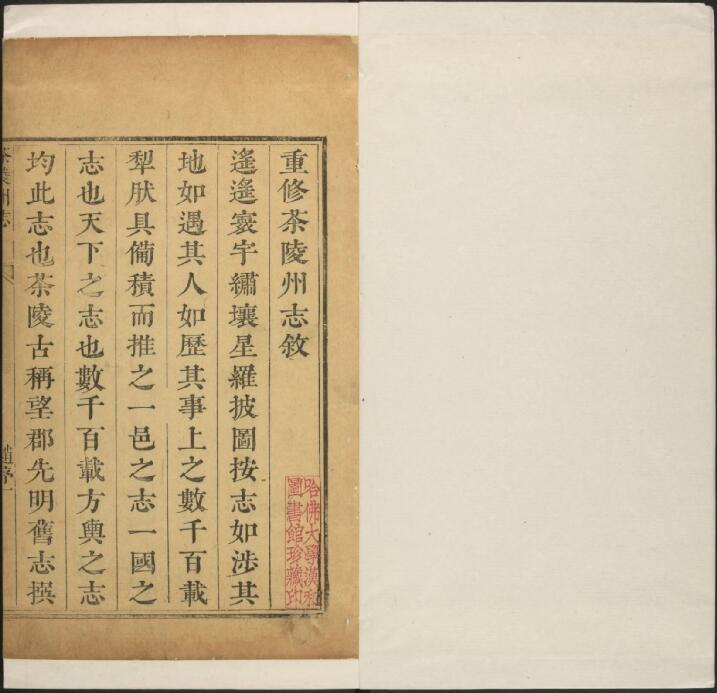 重修茶陵州志敘
遙遙寰宇繡壤星羅披圖按志如涉其
地如遇其人如歷其事上之數千百載
犁肰具備積而推之一邑之志一國之
志也天下之志也數千百載方輿之志
均此志也茶陵古稱望郡先明舊志撰
茶陵州志
趙序一
哈佛大學漢和
圖書館珍藏印